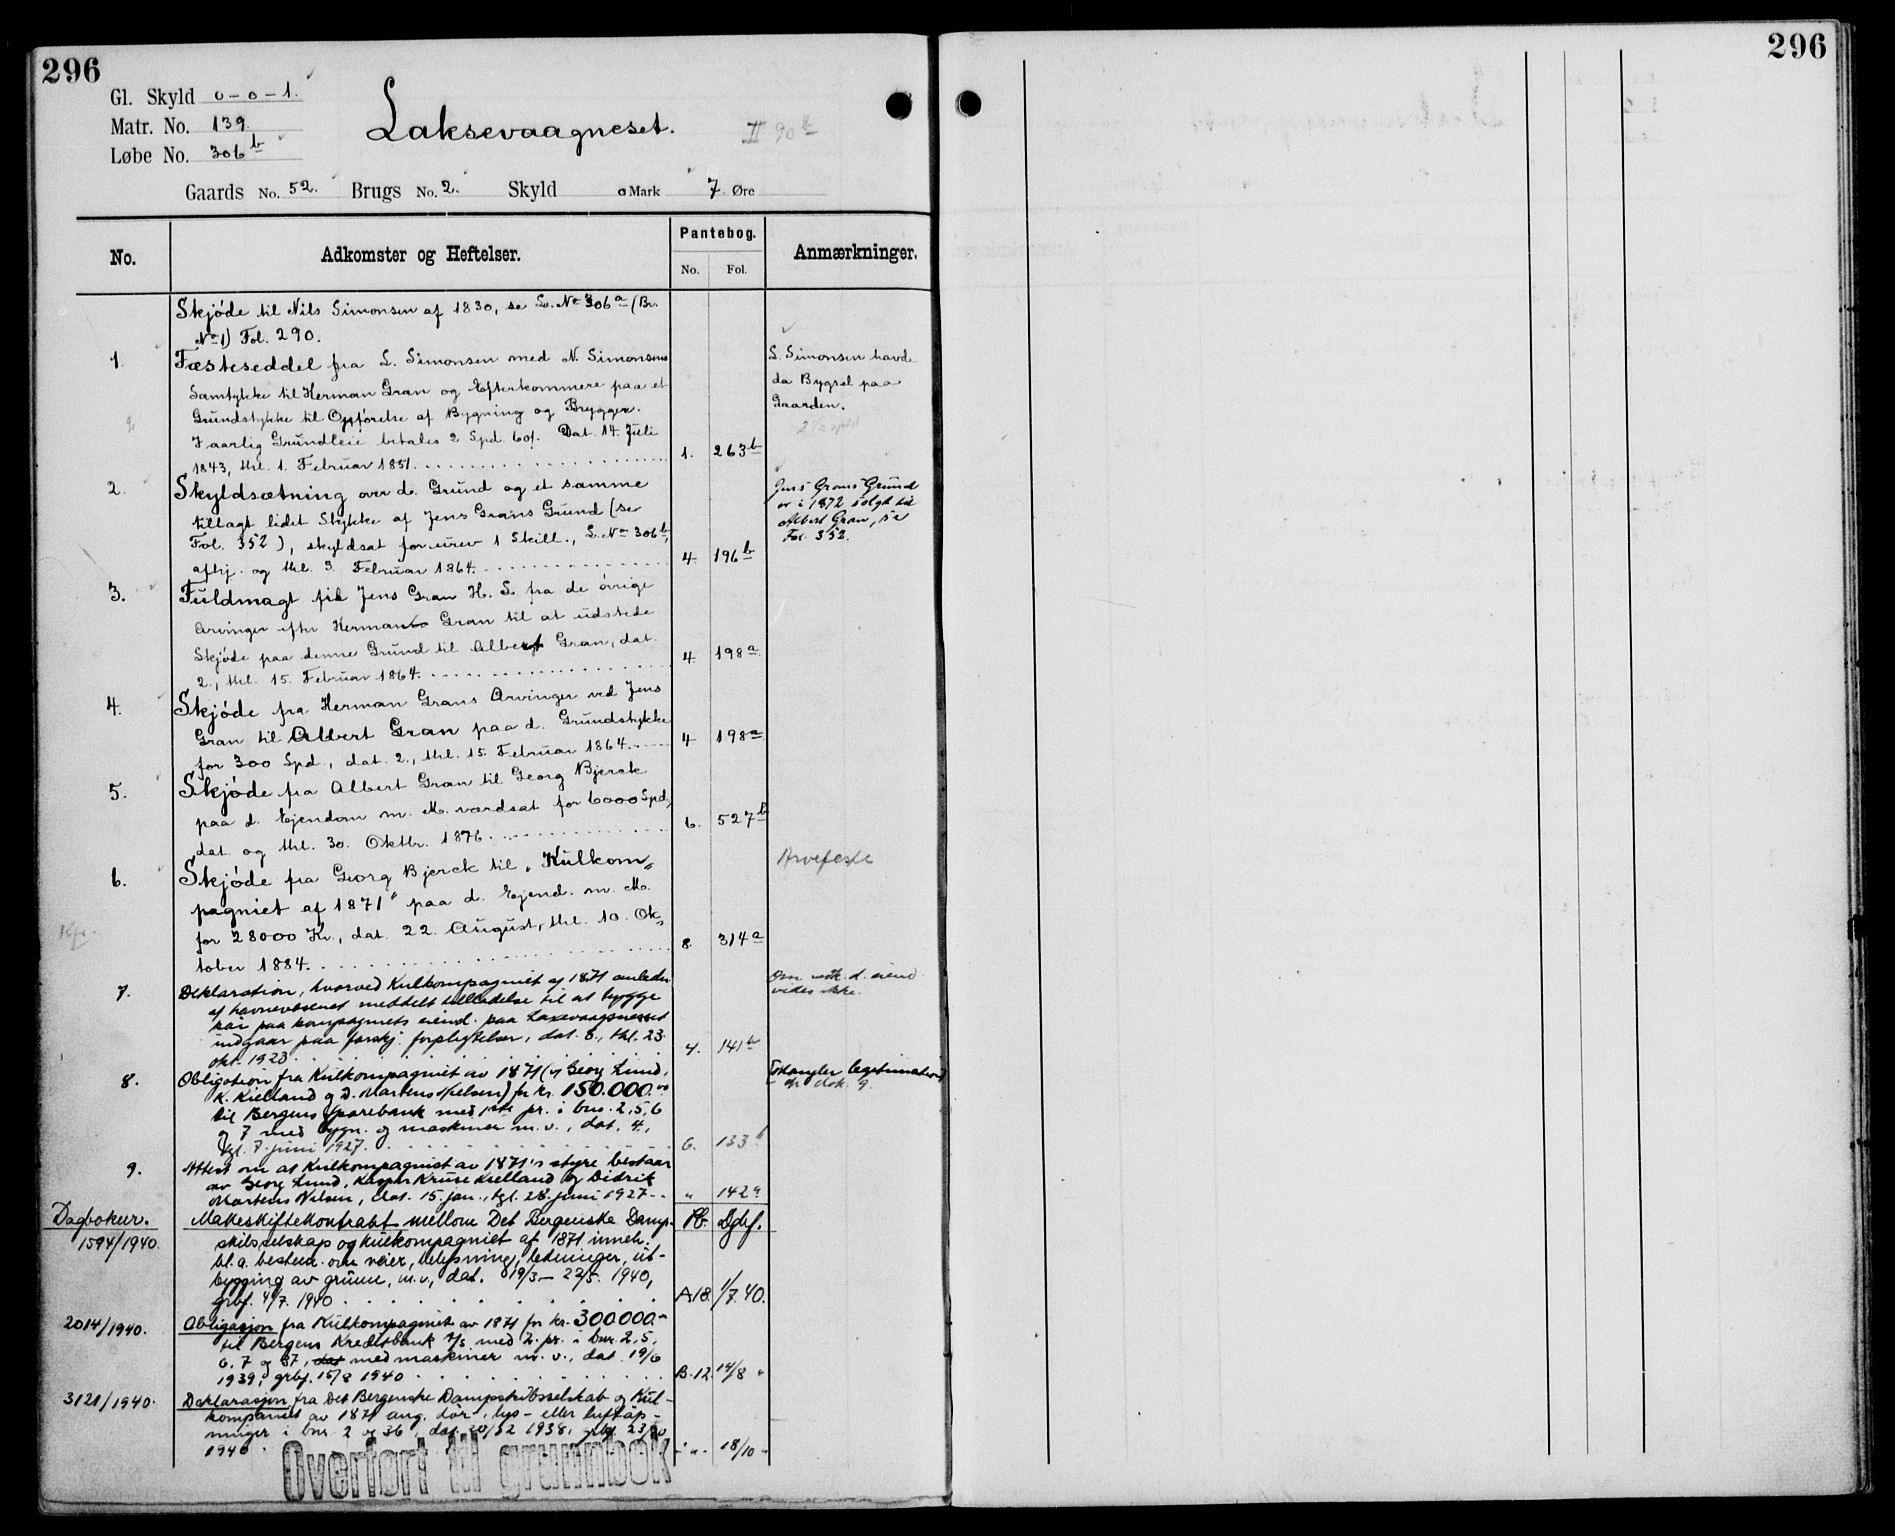 296
296
Gl. Skyld 0-0-1.
Matr. No. 139.
Løbe No. 306 b
Laksevaagneset.
II 90 b
Gaards No. 52. Brugs No. 2. Skyld 0 Mark 7 Øre
No.
Adkomster og Heftelser.
Pantebog.
No. Fol.
Anmærkninger.
Skjøde til Nils Simonsen af 1830, se Lo. No 306 a (Br.
No 1) Fol. 290.
1. Fæsteseddel fra L. Simonsen med N. Simonsens
Samtykke til Herman Gran og Efterkommere paa et
Grundstykke til Opførelse af Bygning og Brygger.
I aarlig Grundleie betales 2 Spd. 60 s. Dat. 14. Juli
1843, thl. 1. Februar 1851. 1. 263 b
L. Simonsen havde
da Bygsel paa
Gaarden.
2. Skyldsætning over d. Grund og et samme
tillagt lidet Stykke af Jens Grans Grund (se
Fol. 352), skyldsat for urev 1 Skill., L. No 306 b,
afhj. og thl. 3. Februar 1864. 4. 196 b
Jens Grans Grund
er i 1872 solgt til
Albert Gran, se
Fol. 352.
3. Fuldmagt til Jens Gran H. S. fra de øvrige
Arvinger efter Herman Gran til at udstede
Skjøde paa denne Grund til Albert Gran, dat.
2., thl. 15. Februar 1864. 4. 198 a
4. Skjøde fra Herman Grans Arvinger ved Jens
Gran til Albert Gran paa d. Grundstykke
for 300 Spd., dat. 2., thl. 15. Februar 1864. 4 198 a
5. Skjøde fra Albert Gran til Georg Bjerck
paa d. Ejendom m. M. værdsat for 6000 Spd.,
dat. og thl. 30. Oktbr. 1876. 6. 527 b
6. Skjøde fra Georg Bjerck til „Kulkom„
pagniet af 1871" paa d. Ejend. m. M.
for 28000 Kr., dat. 22. August, thl. 10. Ok„
tober 1884. 8. 314 a
Arvefeste
7. Deklaration, hvorved Kulkompagniet af 1871 anledn.
af havnevæsenet meddelt tilladelse til at bygge
kai paa kompagniets eiend. paa Laxevaagnesset
indgaar paa forskj. forpligtelser, dat. 8., thl. 23.
okt. 1923. 4. 141 b
Om vedk. d. eiend.
vides ikke.
8. Obligation fra Kulkompagniet av 1871 (v/ Georg Lund,
K. Kielland og D. Martens Nielsen) for kr. 150.000.00
til Bergens Sparebank med 1ste pr. i bnr. 2, 5, 6
og 7 med bygn. og maskiner m. v., dat. 4.,
tgl. 7. juni 1927. 6. 133
Mangler legitimation
cfr. dok. 9.
9. Attest om at Kulkompagniet av 1871's styre bestaar
av Georg Lund, Kasper Kruse Kielland og Didrik
Martens Nilsen, dat. 15. jan., tgl. 28. juni 1927. „ 142 a
Dagboknr. Pb. Dgbf.
1594/1940. Makeskiftekontrakt mellom Det Bergenske Damp-
skibsselskap og Kulkompagniet af 1871 inneh.
bl. a. bestem. om veier, belysning, ledninger, ut-
bygging av grunn, m. v., dat. 19/3 – 22/5. 1940,
grbf. 4/7. 1940. A 18. 1/7. 40.
2014/1940. Obligasjon fra Kulkompagniet av 1871 for kr. 300000.-
til Bergens Kreditbank A/S med 2. pr. i bnr. 2, 5,
6, 7 og 37, med maskiner m. v., dat. 19/6
1939, grbf. 15/8 1940 B. 12. 14/8 "
3121/1940. Deklarasjon fra Det Bergenske Dampskibsselskab og Kul-
kompaniet av 1871 ang. dør-, lys- eller luftåp-
ninger i bnr. 2 og 36, dat. 20/12 1938, grbf. 23/10
1940 - " - 18/10 -
Overført til grunnbok